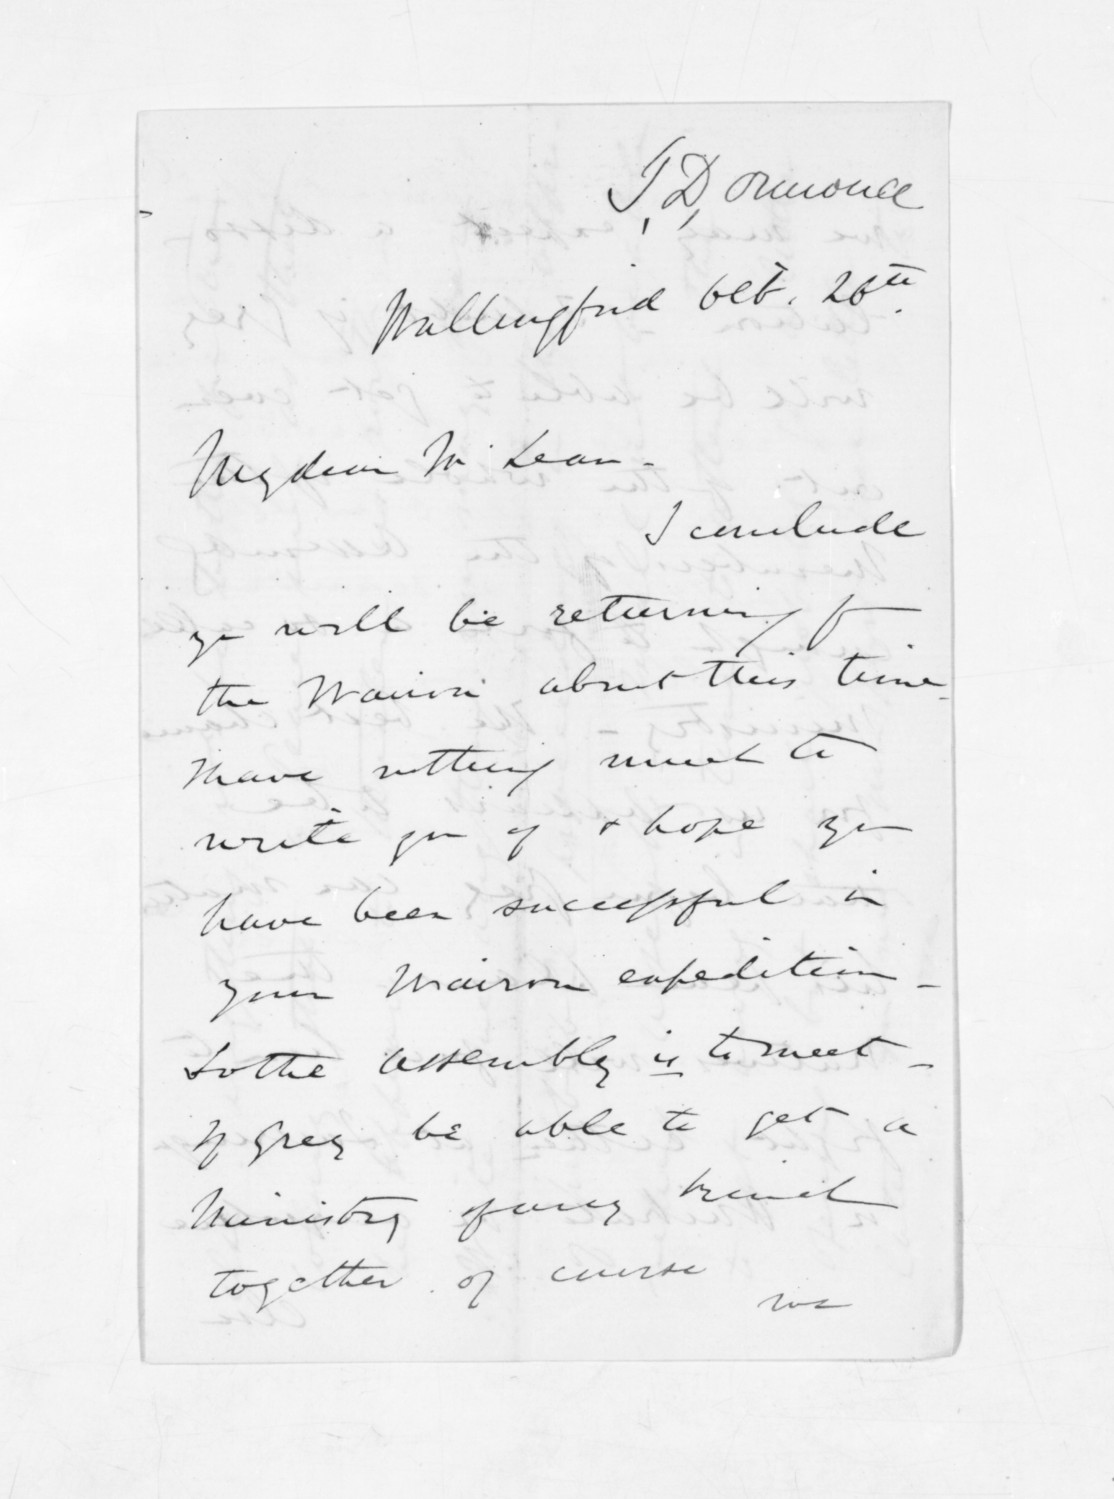 J. D. Ormond
Wallingford Oct. 26th
My dear McLean -
I conclude
you will be returning f
the Wairoa about this time -
I have nothing much to
write you of & hope you
have been successful in
your Wairoa expedition -
So the Assembly is to meet -
If Grey be able to get a
Ministry of any kind
together of course
we